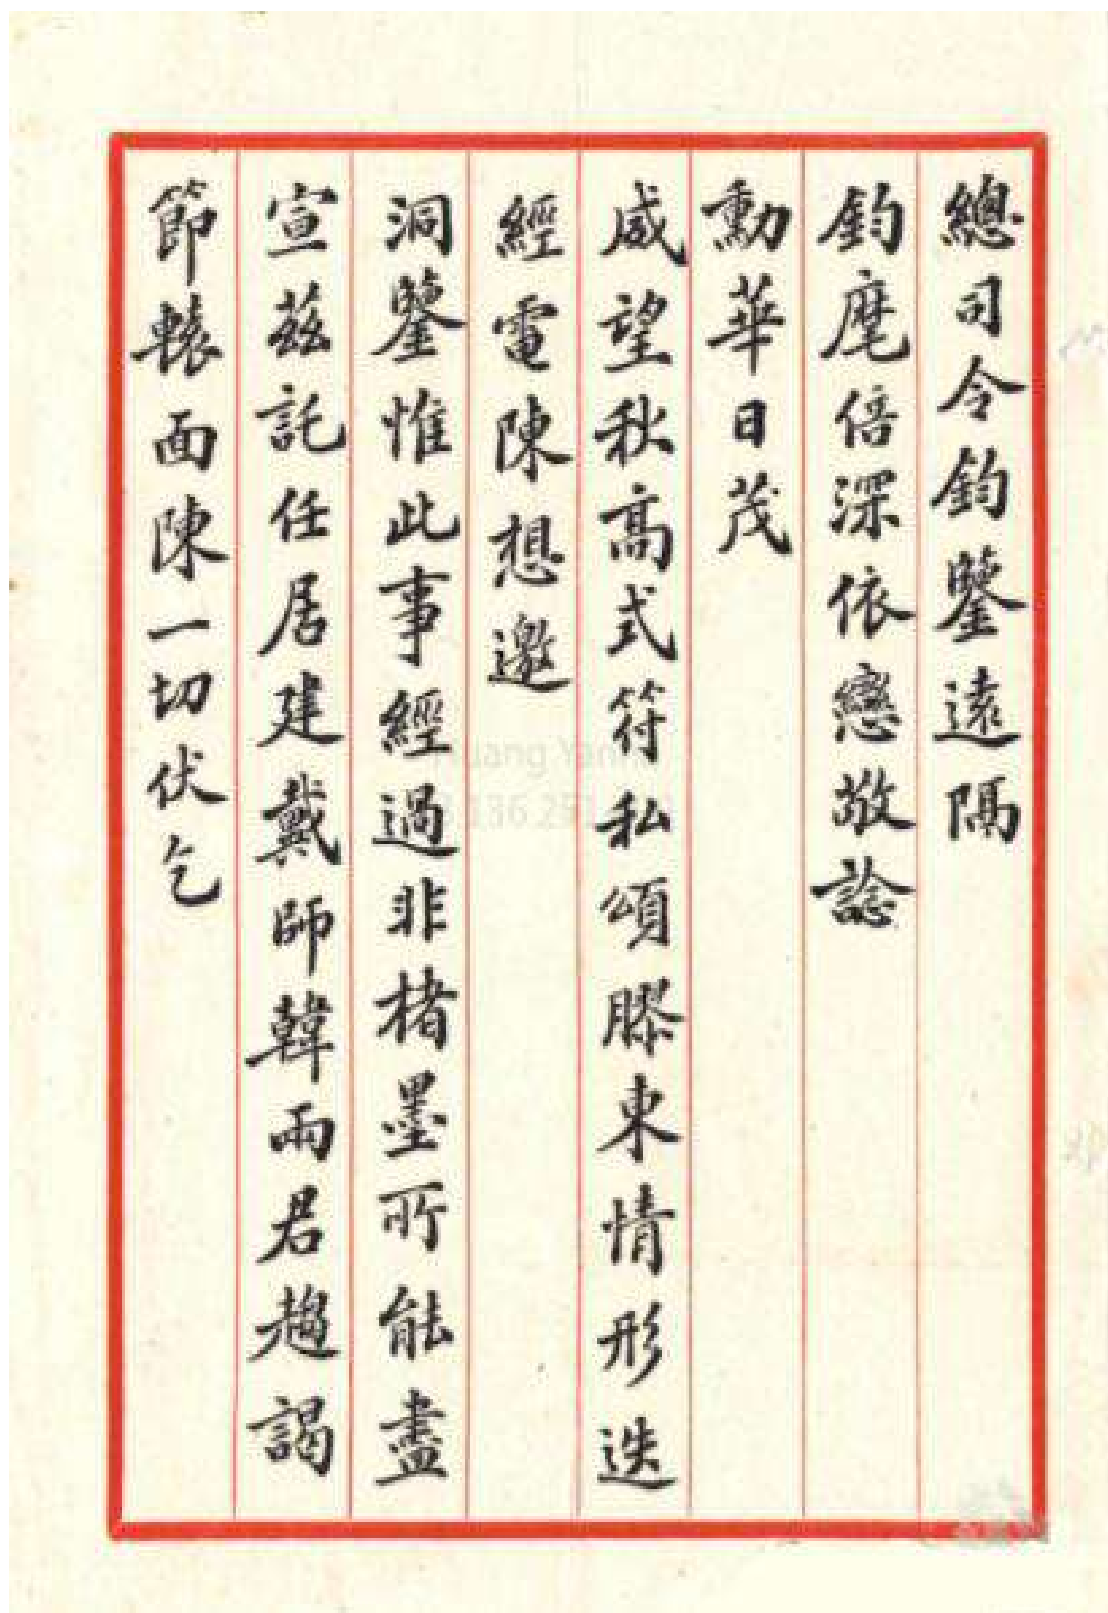 總司令鈞鑒遠隔
鈞麾倍深依戀敬諗
勳華日茂
威望秋高式符私頌膠東情形迭
經電陳想邀
洞鑒惟此事經過非楮墨所能盡
宣茲託任居建戴師韓兩君趨謁
節轅面陳一切伏乞